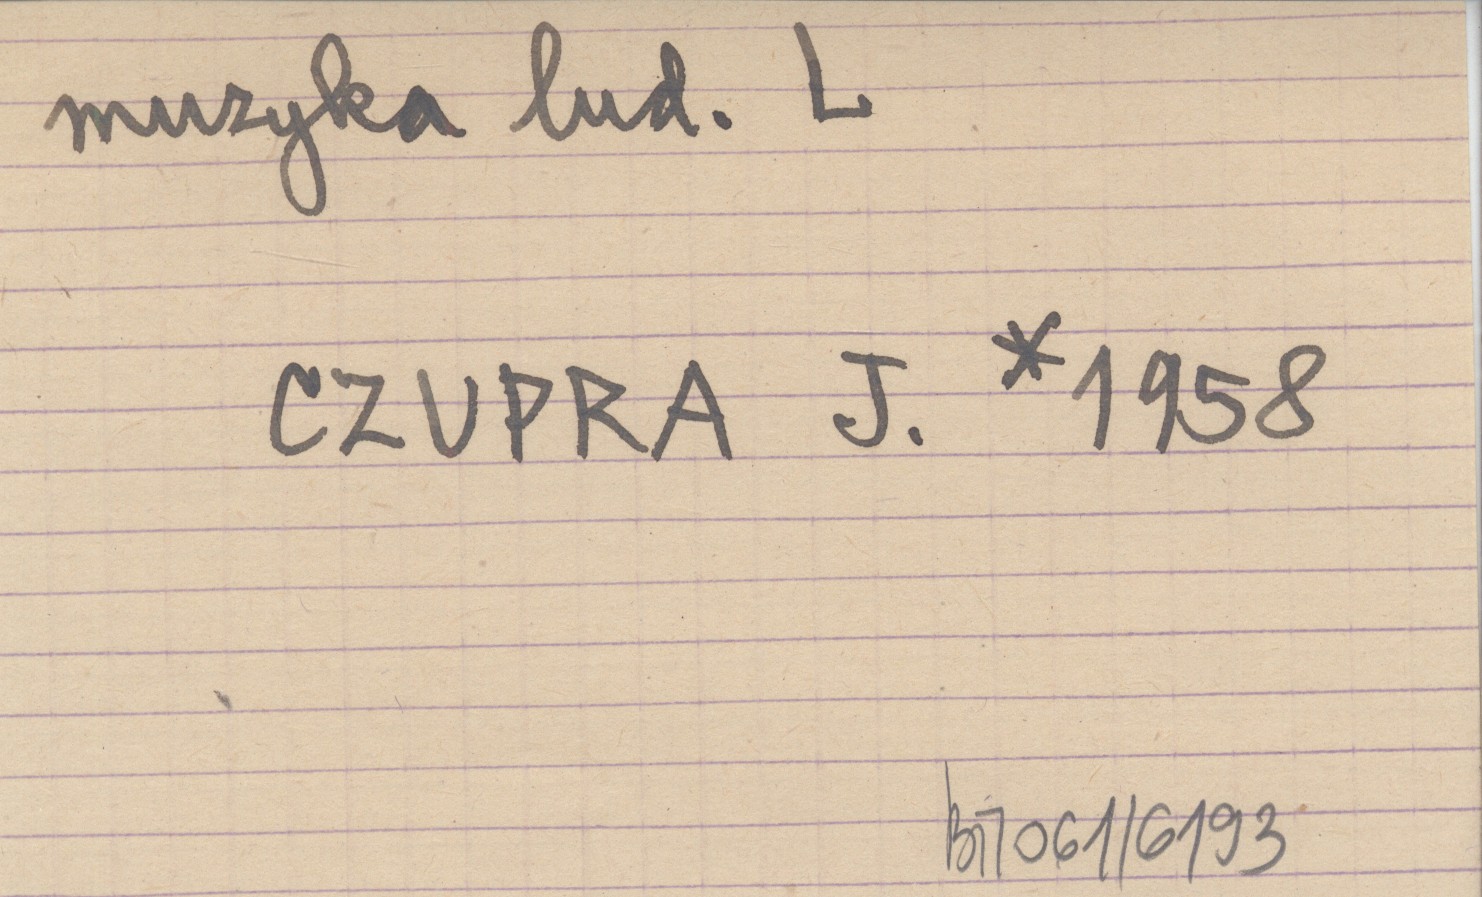 muzyka lud. L
CZUPRA J. *1958
061/6193